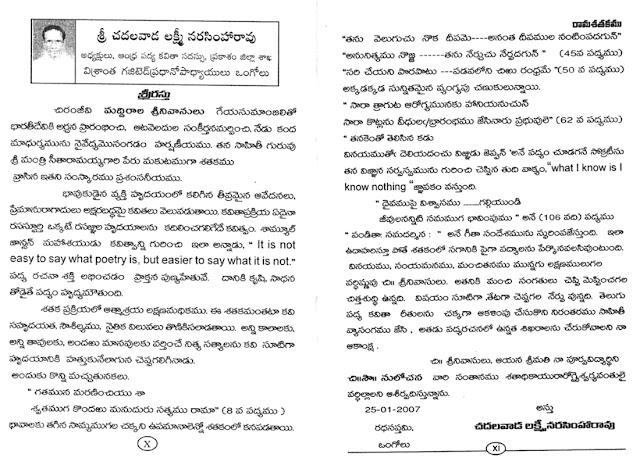 శ్రీ చదలవాడ లక్ష్మీ నరసింహారావు
అధ్యక్షులు, ఆంధ్ర పద్య కవితా సదస్సు, ప్రకాశం జిల్లా శాఖ
విశ్రాంత గజిటెడ్ ప్రధానోపాధ్యాయులు ఒంగోలు
శ్రీరస్తు
చిరంజీవి మద్దిరాల శ్రీనివాసులు గేయసుమాంజలితో
భారతీదేవికి అర్చన ప్రారంభించి, ఆటవెలదుల సంకీర్తనమర్పించి, నేడు కంద
మాధుర్యమును నైవేద్యమొనంగడం హర్షణీయము. తన సాహితీ గురువు
శ్రీ మంత్రి సీతారామయ్యగారి పేరు మకుటముగా శతకము
వ్రాసిన ఇతని సంస్కారము ప్రశంసనీయము.
భావుకుడైన వ్యక్తి హృదయంలో కలిగిన తీవ్రమైన ఆవేదనలు,
ప్రేమానురాగాదులు అక్షరబద్ధమై కవితలు వెలువడతాయి. కవితాప్రక్రియ ఏదైనా
రసస్ఫూర్తి ఒక్కటే రసజ్ఞుల హృదయాలను కదిలించగలిగేదే కవిత్వం. శామ్యూల్
జాన్సన్ మహాశయుడు కవిత్వాన్ని గురించి ఇలా అన్నాడు, " It is not
easy to say what poetry is, but easier to say what it is not."
పద్య రచనా శక్తి లభించడం ప్రాక్తన పుణ్యహేతువే. దానికి కృషి, సాధన
తోడైతే పద్యం హృద్యమౌతుంది.
శతక ప్రక్రియలో ఆత్మాశ్రయ లక్షణమధికము. ఈ శతకమంతటా కవి
సహృదయత, సౌశీల్యము, నైతిక విలువలు తొణికిసలాడతాయి. అన్ని కాలాలకు,
అన్ని తావులకు, అందఱు మానవులకు వర్తించే నిత్య సత్యాలను కవి సూటిగా
హృదయానికి హత్తుకునేలాగున చెప్పగలిగినాడు.
అందుకు కొన్ని మచ్చుతునకలు.
" గతమున మరణించియు శా
శ్వతముగ కొందఱు మనుదురు సత్యము రామా" (8 వ పద్యము )
భావాలకు తగిన సామ్యముగల చక్కని ఉపమానాలెన్నో శతకంలో కనపడతాయి.
X
రామశతకము
"తను వెలుగుచు నొక దీపమె----అనంత దీపముల నంటింపదగున్"
"అనునిత్యము నొజ్జ -------తను నేర్చుచు నేర్పదగున్ " (45వ పద్యము)
"సరి చేయని పొరపాటు ---పడవలోని చిఱు రంధ్రమే "(50 వ పద్యము)
అక్కడక్కడ సున్నితమైన వ్యంగ్యపు చణుకులున్నాయి.
" సారా త్రాగుట ఆరోగ్యమునకు హానియనుచున్
సారా కొట్లను వీధుల(బ్రారంభము జేసినారు ప్రభువులే" (62 వ పద్యము)
" తనకెంతో తెలిసిన కడు
వినయముతో( దెలియదంచు విజ్ఞుడు జెప్పున్ 'అనే పద్యం చూడగనే సోక్రటీసు
తన విజ్ఞాన సర్వస్వమును గురించి చెప్పిన తుది వాక్యం, "what I know is I
know nothing "జ్ఞాపకం వస్తుంది.
" దైవముపై విశ్వాసము .......గల్గియుండి
జీవులనన్నిటి సమముగ భావింపుము " అనే (106 వది) పద్యము
" పండితా సమదర్శిన: " అనే గీతా సందేశమును స్ఫురింపజేస్తుంది. ఇలా
ఉదాహరిస్తూ పోతే శతకంలో సగానికి పైగా పద్యాలను పేర్కొనవలసివుంటుంది.
వినయము, సంయమనము, మంచితనము మున్నగు లక్షణములుగల
వర్ధిష్ణువు చి|| శ్రీనివాసులు. అతనికి మంచి సంగతులు చెప్పి మెప్పించగల
చిత్తశుద్ధి ఉన్నది. విషయం సూటిగా ,తేటగా చెప్పగల నేర్పు వున్నది. తెలుగు
పద్య కవితా రీతులను చక్కగా ఆకళింపు చేసుకొని నిరంతరము సాహితీ
వ్యాసంగము జేసి , అతడు పద్యరచనలో ఉన్నత శిఖరాలను చేరుకోవాలని నా
ఆకాంక్ష .
చి|| శ్రీనివాసులు, ఆయన శ్రీమతి నా పూర్వవిద్యార్థిని
చి||సౌ|| సులోచన వారి సంతానము శతాధికాయురారోగ్యైశ్వర్యవంతులై
వర్ధిల్లాలని ఆశీర్వదిస్తున్నాను.
25-01-2007 అస్తు
రథసప్తమి, చదలవాడ లక్ష్మీనరసింహారావు
ఒంగోలు
XI